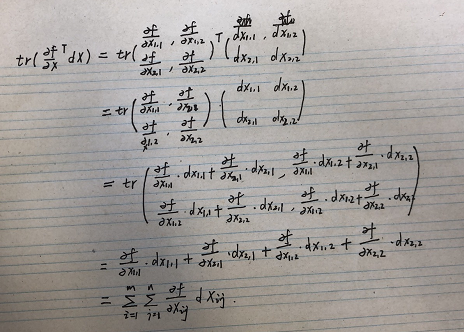 tr(∂f/∂x ᵀ dx) = tr( (∂f/∂x₁,₁ , ∂f/∂x₁,₂ ; ∂f/∂x₂,₁ , ∂f/∂x₂,₂)ᵀ (dx₁,₁ , dx₁,₂ ; dx₂,₁ dx₂,₂) )
= tr( (∂f/∂x₁,₁ , ∂f/∂x₂,₁ ; ∂f/∂x₁,₂ , ∂f/∂x₂,₂) · (dx₁,₁ dx₁,₂ ; dx₂,₁ dx₂,₂) )
= tr( ∂f/∂x₁,₁ · dx₁,₁ + ∂f/∂x₂,₁ · dx₂,₁ , ∂f/∂x₁,₁ · dx₁,₂ + ∂f/∂x₂,₁ · dx₂,₂
∂f/∂x₁,₂ · dx₁,₁ + ∂f/∂x₂,₂ · dx₂,₁ , ∂f/∂x₁,₂ · dx₁,₂ + ∂f/∂x₂,₂ · dx₂,₂ )
= ∂f/∂x₁,₁ · dx₁,₁ + ∂f/∂x₂,₁ · dx₂,₁ + ∂f/∂x₁,₂ · dx₁,₂ + ∂f/∂x₂,₂ · dx₂,₂
= Σᵢ₌₁ᵐ Σⱼ₌₁ⁿ ∂f/∂xᵢⱼ dxᵢⱼ .